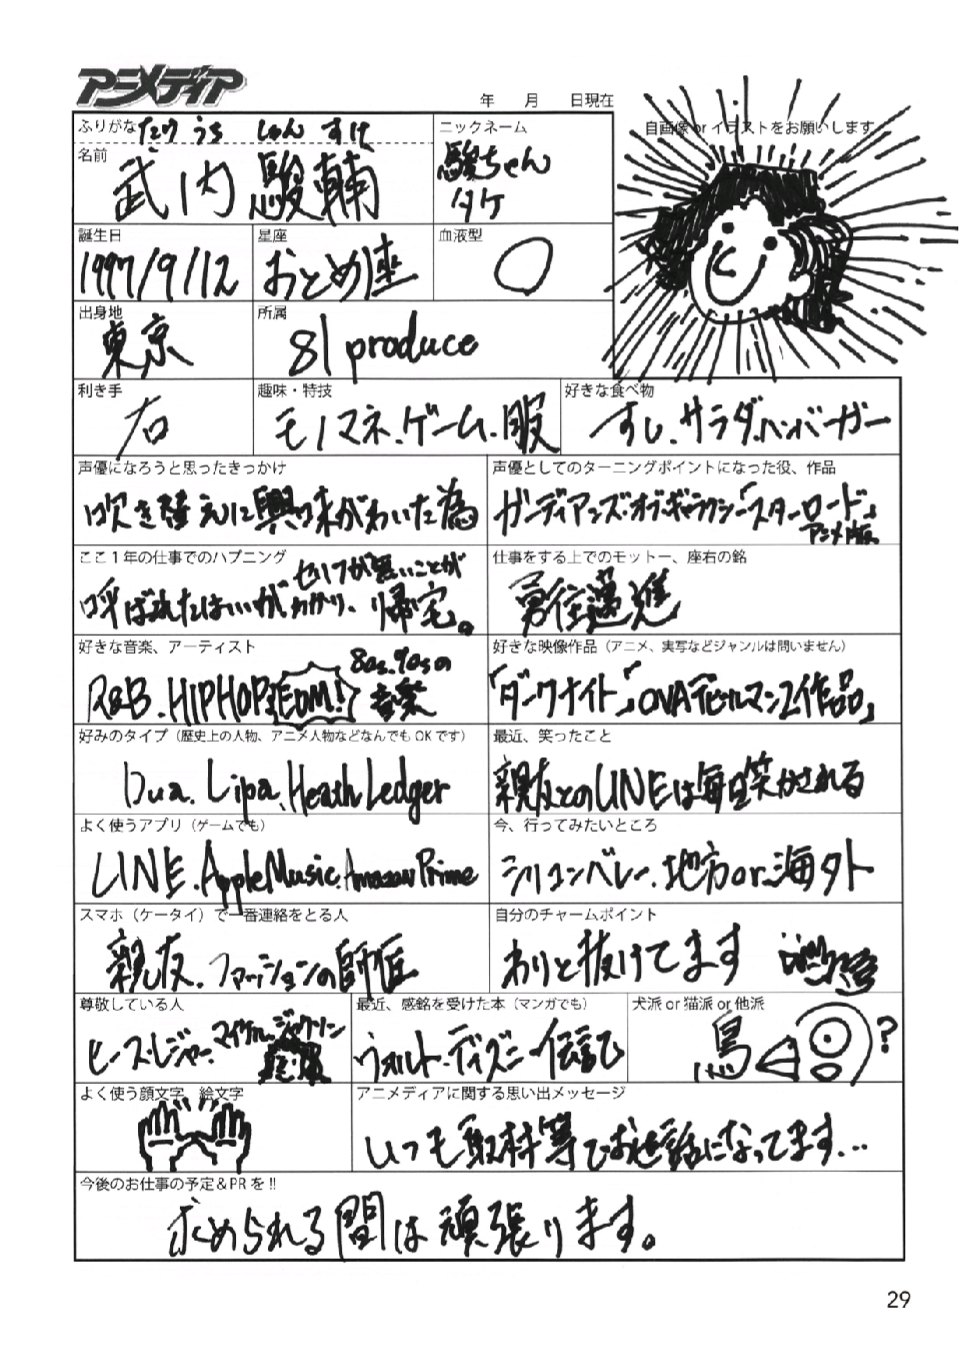 アニメディア
年 月 日現在
ふりがな たけ うち しゅん すけ
名前
武内 駿輔
ニックネーム
駿ちゃん
タケ
自画像 or イラストをお願いします
誕生日
1997/9/12
星座
おとめ座
血液型
O
出身地
東京
所属
81 produce
利き手
右
趣味・特技
モノマネ、ゲーム、服
好きな食べ物
すし、サラダ、ハンバーガー
声優になろうと思ったきっかけ
吹き替えに興味がわいた為
声優としてのターニングポイントになった役、作品
ガーディアンズ・オブ・ギャラクシー「スター・ロード」
アニメ版
ここ1年の仕事でのハプニング
呼ばれたはいいがセリフが無いことがわかり、帰宅。
仕事をする上でのモットー、座右の銘
勇往邁進
好きな音楽、アーティスト
R&B、HIPHOP、EDM! 80s、90sの音楽
好きな映像作品（アニメ、実写などジャンルは問いません）
「ダークナイト」「OVAデビルマン2作品」
好みのタイプ（歴史上の人物、アニメ人物などなんでもOKです）
Dua. Lipa、Heath Ledger
最近、笑ったこと
親友とのLINEは毎日笑かされる
よく使うアプリ（ゲームでも）
LINE、Apple Music、Amazon Prime
今、行ってみたいところ
シリコンバレー、地方or海外
スマホ（ケータイ）で一番連絡をとる人
親友、ファッションの師匠
自分のチャームポイント
わりと抜けてます
尊敬している人
ヒース・レジャー、マイケル・ジャクソン
最近、感銘を受けた本（マンガでも）
ウォルト・ディズニー伝記
犬派 or 猫派 or 他派
鳥 ?
よく使う顔文字、絵文字
アニメディアに関する思い出メッセージ
いつも取材等でお世話になってます…
今後のお仕事の予定＆PRを!!
求められる間は頑張ります。
29